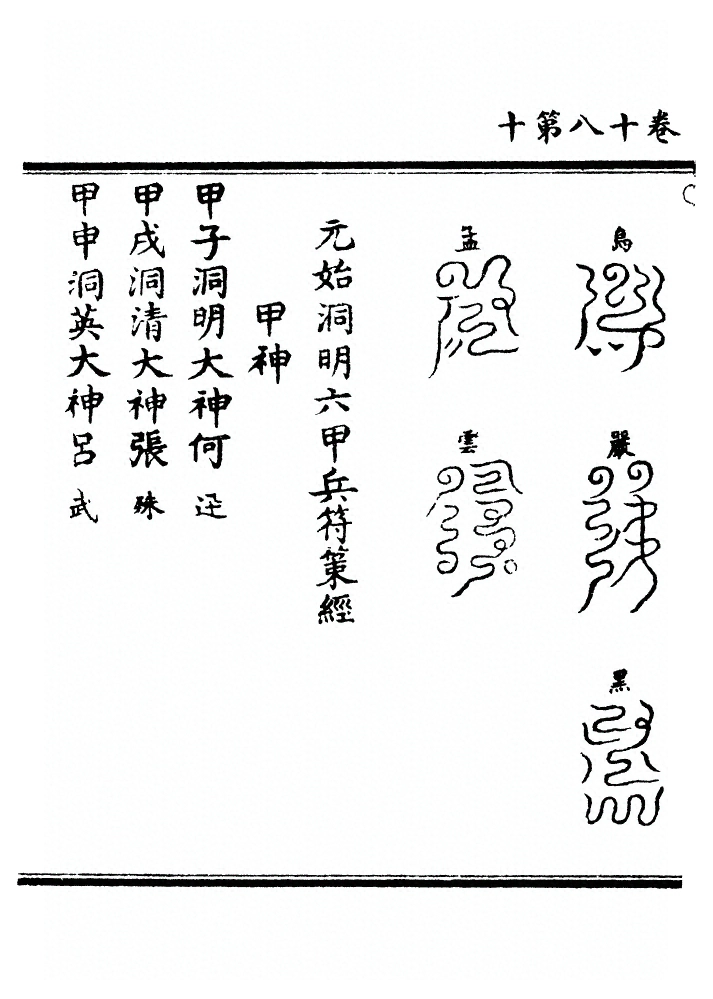 卷十八第十
鳥
嚴
黑
孟
雲
元始洞明六甲兵符策經
甲神
甲子洞明大神何
甲戌洞清大神張殊
甲申洞英大神呂武